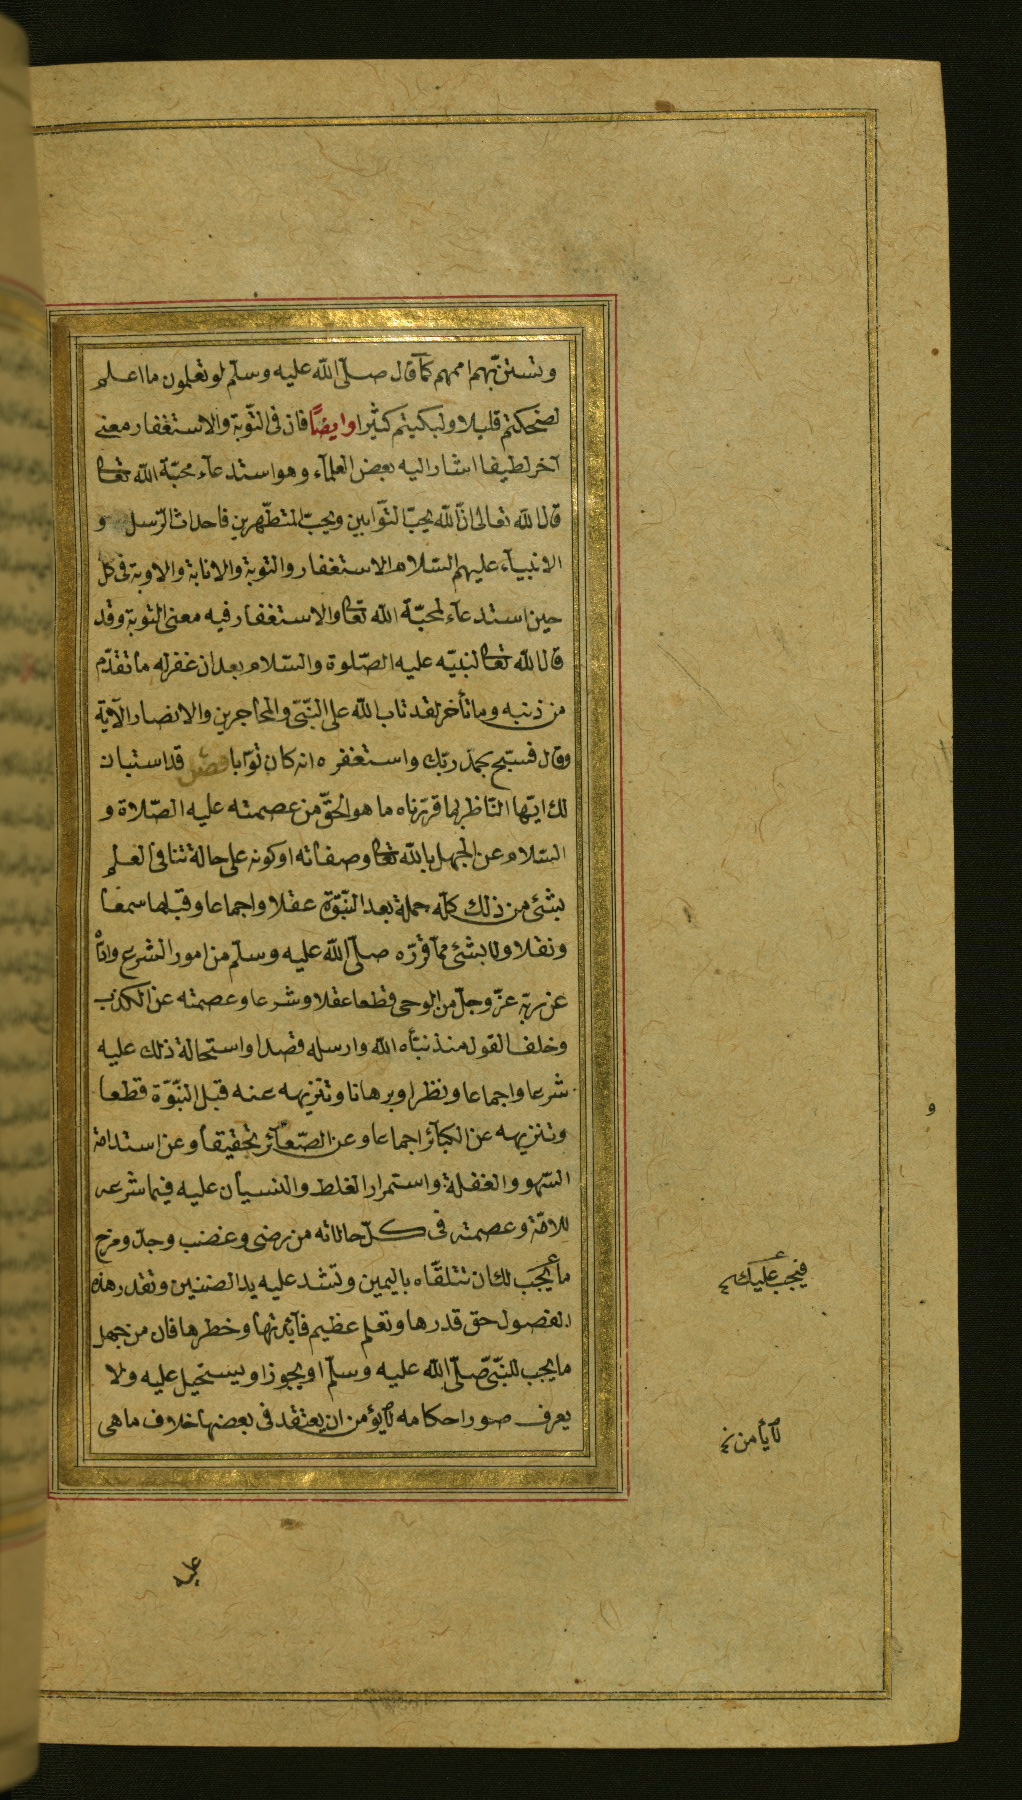 وتستن بهم اممهم كما قال صلى الله عليه وسلم لو تعلمون ما اعلم
لضحكتم قليلا ولبكيتم كثيرا وايضًا فان فى التوبة والاستغفار معنى
آخر لطيفا اشار اليه بعض العلمآء وهو استدعآء محبّة الله تعا
قال الله تعالى انّ الله يحبّ التوّابين ويحبّ المتطهّرين فاحداث الرّسل و
الانبيآء عليهم السّلام الاستغفار والتوبة والانابة والاوبة فى كلّ
حين استدعآء لمحبّة الله تعا والاستغفار فيه معنى التوبة وقد
قال الله تعا لنبيّه عليه الصّلوة والسّلام بعد ان غفر له ما تقدّم
من ذنبه وما تأخر لقد تاب الله على النّبىّ والمهاجرين والانصار الآية
وقال فسبّح بحمد ربّك واستغفره انه كان توّابا فصل قد استبان
لك ايّها النّاظر بما قررّناه ما هو الحقّ من عصمته عليه الصّلاة و
السّلام عن الجهل بالله تعا وصفاته او كونه على حالة تنافى العلم
بشئ من ذلك كلّه جملة بعد النّبوّة عقلا واجماعا وقبلها سمعًا
ونقلا ولا بشئ ممّا قرّره صلّى الله عليه وسلّم من امور الشرع وادّاه
عن ربّه عزّ وجلّ من الوحى قطعا عقلا وشرعا وعصمته عن الكذب
وخلف القول منذ نبّأه الله وارسله قصدا واستحالة ذلك عليه
شرعا واجماعا ونظرا وبرهانا وتنزيهه عنه قبل النّبوّة قطعا
وتنزيهه عن الكبآئر اجماعا وعن الصّغآئر تحقيقا وعن استدامة
السّهو والغفلة واستمرار الغلط والنسيان عليه فيما شرعه
للامّة وعصمته فى كلّ حالاته من رضى وغضب وجدّ ومزح
ما يجب لك ان تتلقّاه باليمين وتشد عليه يد الضنين وتقدر هذه
الفصول حق قدرها وتعلم عظيم فآئدتها وخطرها فان من جهل
ما يجب للنّبىّ صلّى الله عليه وسلّم او يجوز او يستحيل عليه ولا
يعرف صور احكامه لا يؤمن ان يعتقد فى بعضها خلاف ما هى
فيجب عليك
لا يأمن
عليه
و